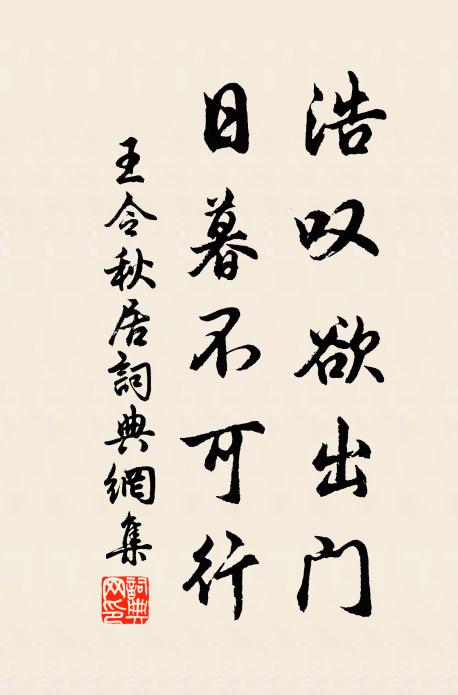 浩叹欲出门
日暮不可行
王令秋居詞典網集
詞典网印